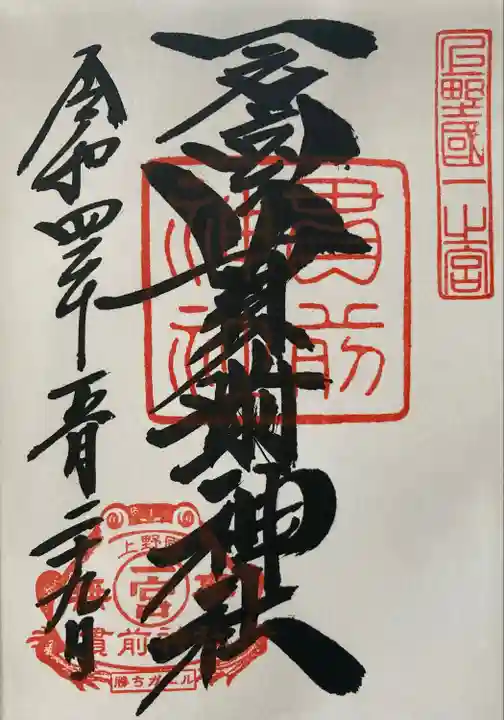 上野國一之宮
一之宮貫前神社
貫前神社
令和四年五月二十九日
上野國
一宮
貫前
勝ちガエル